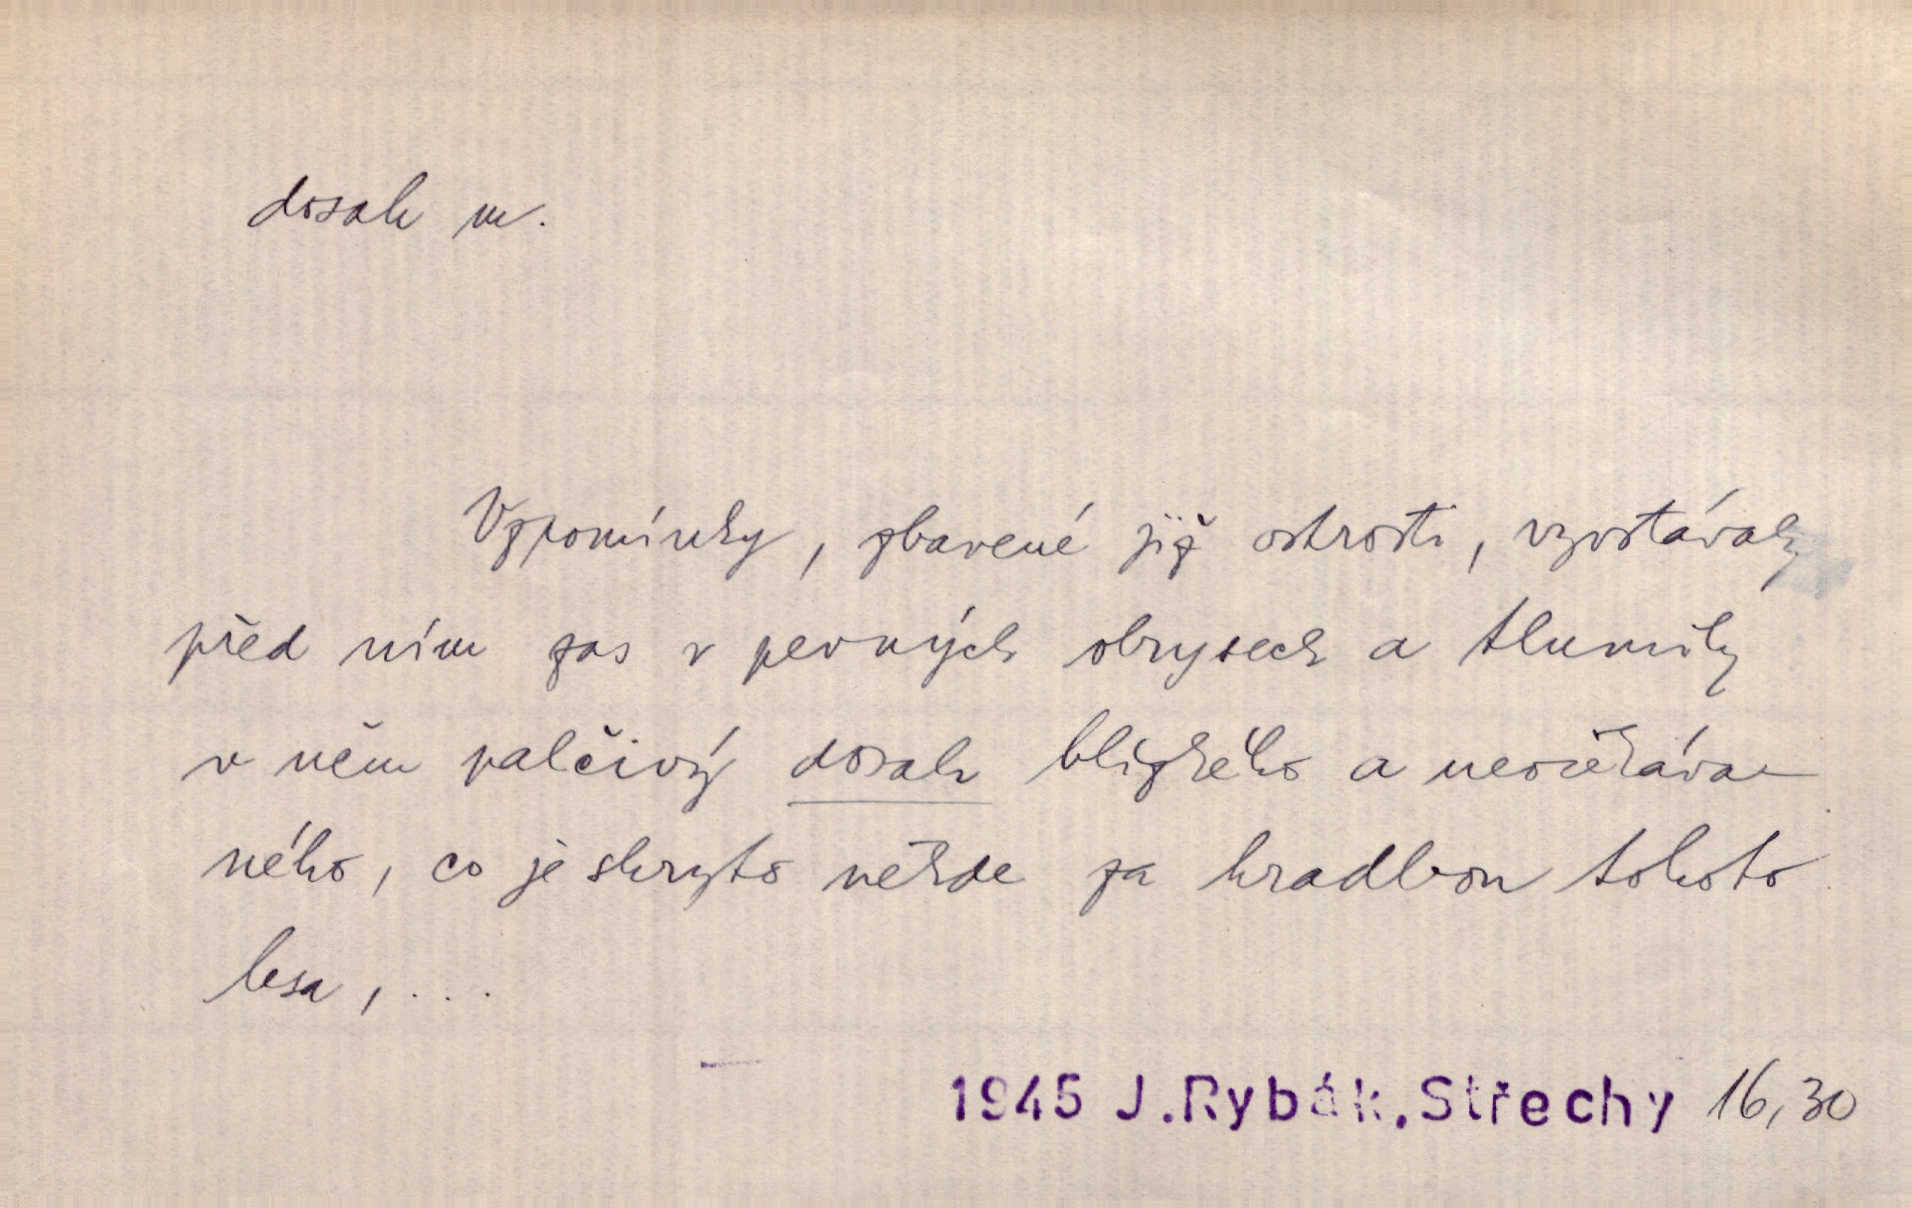 dosah m.
Vzpomínky, zbavené již ostrosti, vyvstávaly
před ním zas v pevných obrysech a tlumily
v něm palčivý dosah blízkého a neočekáva-
ného, co je skryto někde za hradbou tohoto
lesa, ...
1945 J.Rybák,Střechy 16,30